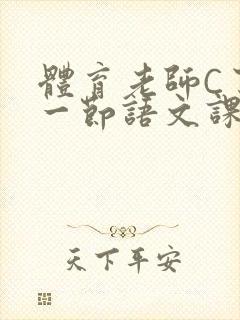 體育老師C
一節語文課
天下平安